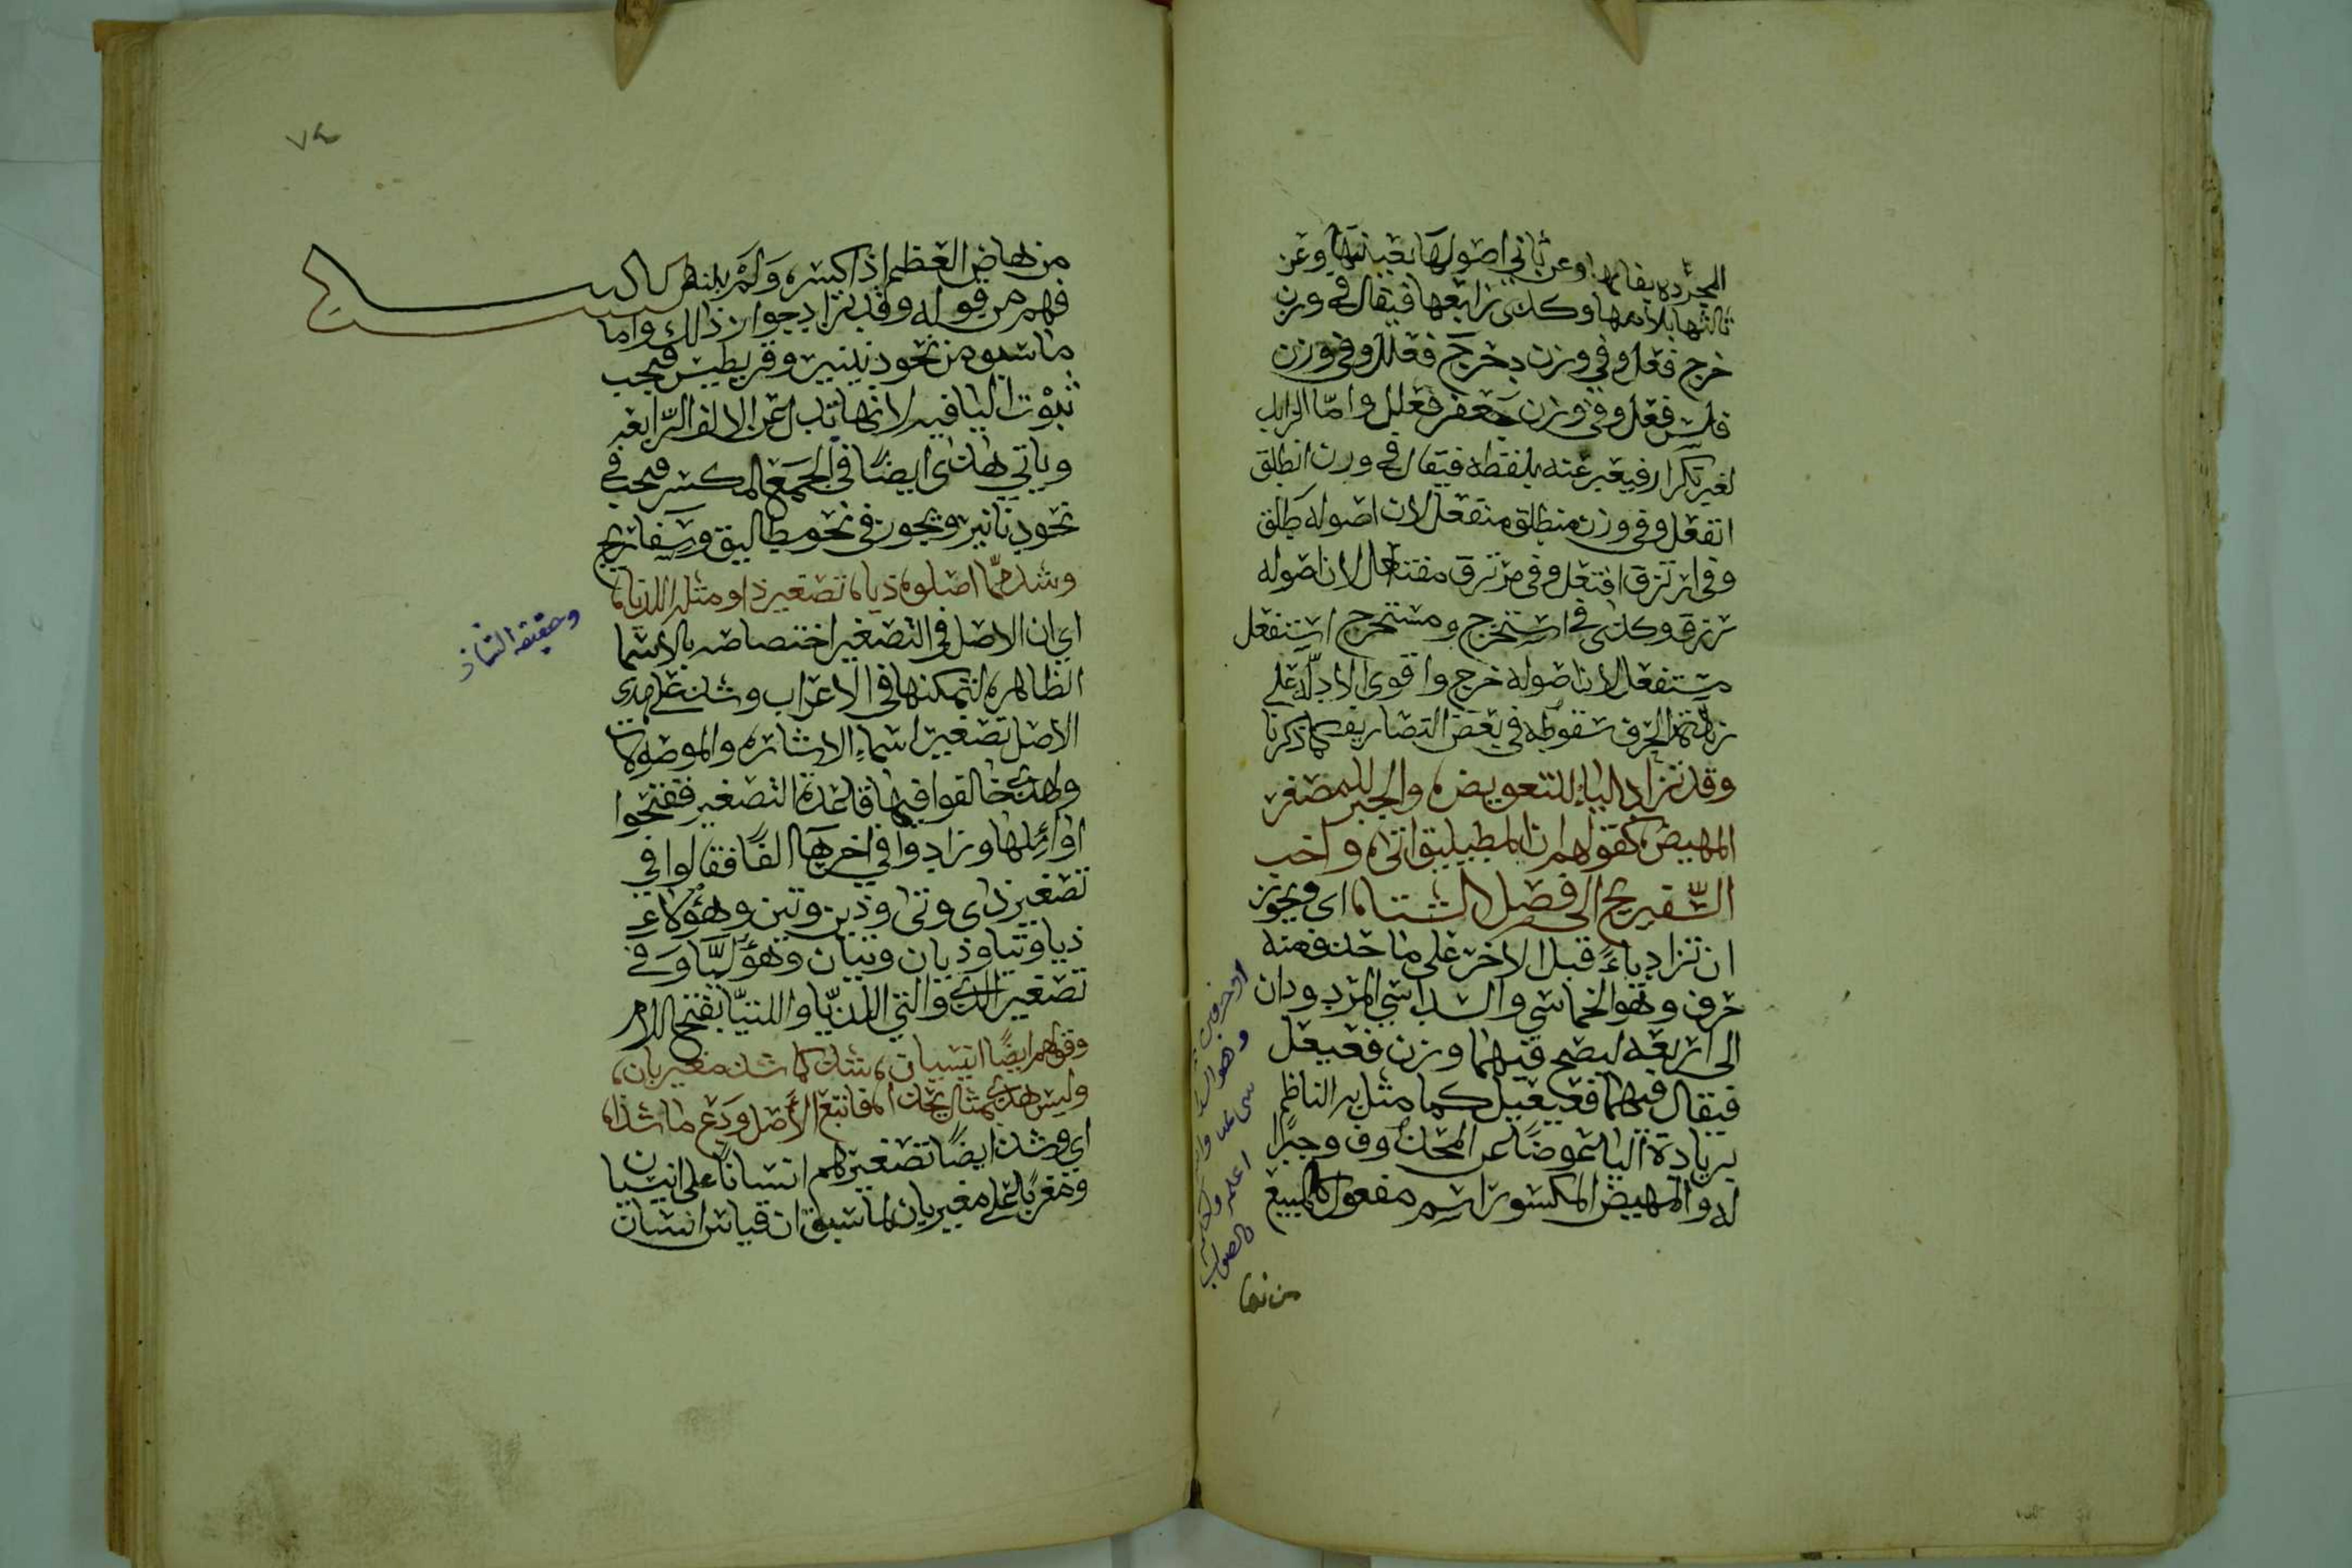 المجرده بفائها وعن ثاني اصولها بعينها وعن
ثالثها بلامها وكذى رابعها فيقال في وزن
خرج فعل وفي وزن دحرج فعلل وفي وزن
فلس فعل وفي وزن جعفر فعلل واما الزايد
لغير تكرار فيعبر عنه بلفظه فيقال في وزن انطلق
انفعل وفي وزن منطلق منفعل لان اصوله طلق
وفي ارتزق افتعل وفي مرتزق مفتعل لان اصوله
رزق وكذى في استخرج ومستخرج استفعل
مستفعل لان اصوله خرج واقوى الادله على
زيادة الحرف سقوطه في بعض التصاريف كما ذكرنا
وقد تزاد الياء للتعويض والجبر للمصغر
المهيض كقولهم ان المطيليق اتى واخب
السفيريج الى فصل الشتا اى ويجوز
ان تزاد ياءً قبل الاخر على ما حذف منه
حرف وهو الخماسي والسداسي المردودان
الى اربعه ليصح فيهما وزن فعيعل
فيقال فيهما فعيعيل كما مثل به الناظم
بزيادة اليا عوضًا عن المحذوف وجبرًا
له والمهيض المكسور اسم مفعول كالمبيع
او حرفين
وهو
اعلم
بالصواب
من هاض
٧٤
من هاض العظم اذا كسره ولم
فهم من قوله وقد تزاد جواز ذلك واما
ما سبق من نحو دنينير وقريطيس فيجب
ثبوت اليا فيه لانها تدل عن الالف الرابعه
وياتي هذى ايضًا في الجمع المكسر فيجب في
نحو دنانير ويجوز في نحو مطاليق وسفاريج
وشذ مما اصلوه ذيا تصغير ذا ومثله اللذيا
اي ان الاصل في التصغير اختصاصه بالاسما
الظاهره لتمكنها في الاعراب وشذ على هذى
الاصل تصغير اسماء الاشاره والموصولات
ولهذى خالفوا فيها قاعدة التصغير ففتحوا
اوائلها وزادوا في اخرها الفًا فقالوا في
تصغير ذى وتى وذين وتين وهؤلاء
ذيا وتيا وذيان وتيان وهؤليا وفي
تصغير الذي والتي اللذيا واللتيا بفتح اللام
وقولهم ايضًا انيسيان شذ كما شذ مغيربان
وليس هذى بمثال يحذى فاتبع الاصل ودع ما شذا
اي وشذ ايضًا تصغيرهم انسانًا على انيسيان
ومغربًا على مغيربان لما سبق ان قياس انسان
وحقيقه الشاذ